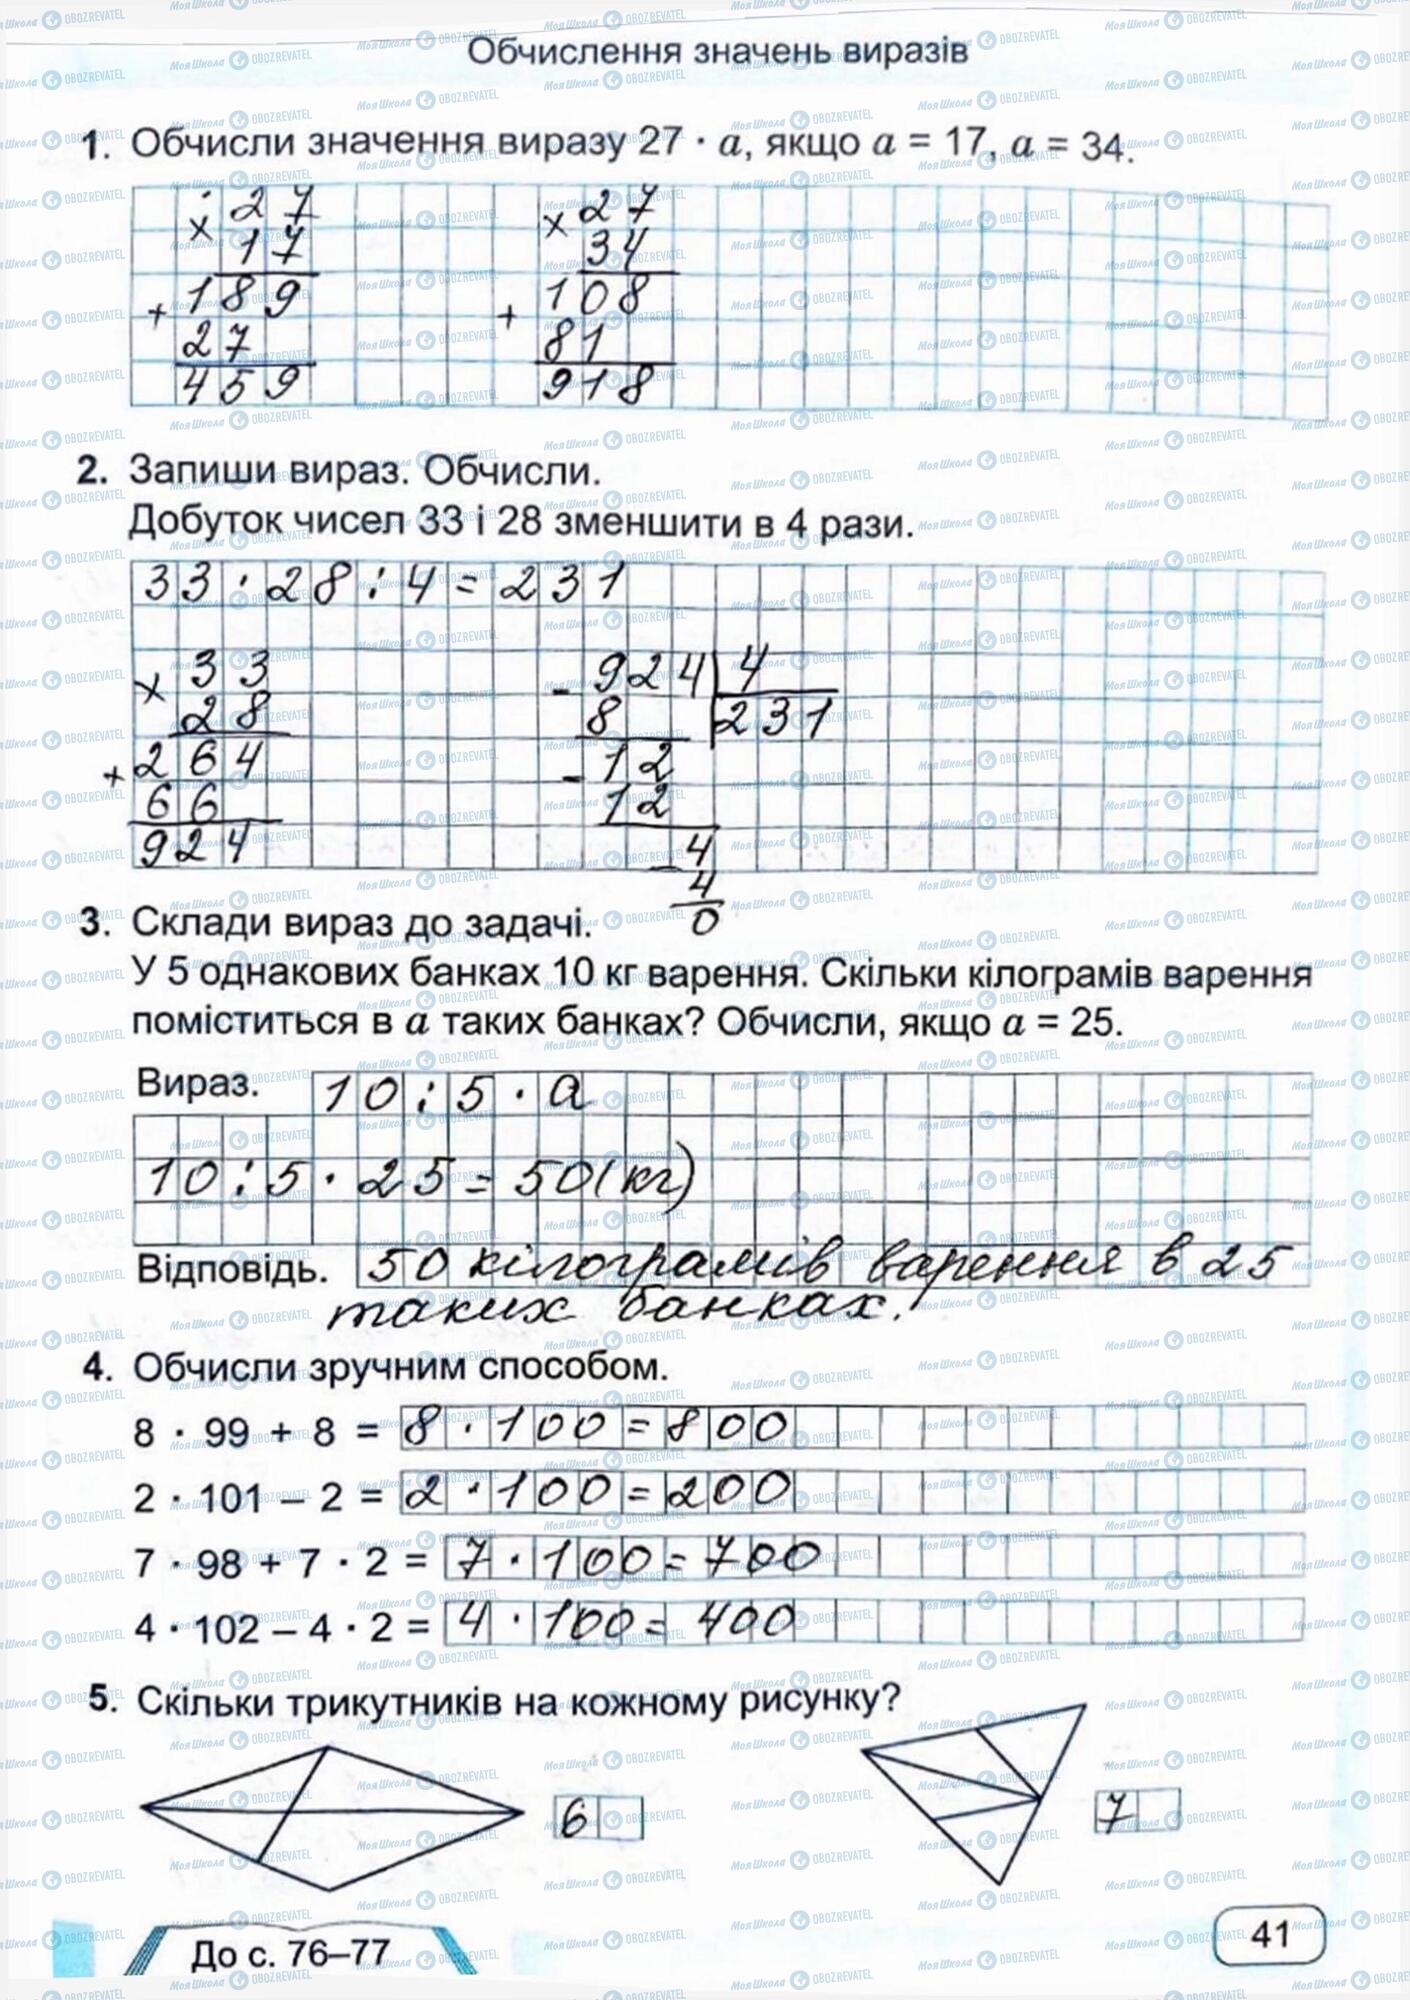 Обчислення значень виразів
1. Обчисли значення виразу 27 · a, якщо a = 17, a = 34.
× 27 × 27
17 34
+ 189 + 108
27 81
459 918
2. Запиши вираз. Обчисли.
Добуток чисел 33 і 28 зменшити в 4 рази.
33 · 28 : 4 = 231
× 33 - 924 4
28 8 231
+ 264 - 12
66 12
924 - 4
4
0
3. Склади вираз до задачі.
У 5 однакових банках 10 кг варення. Скільки кілограмів варення
поміститься в a таких банках? Обчисли, якщо a = 25.
Вираз. 10 : 5 · a
10 : 5 · 25 = 50 (кг)
Відповідь. 50 кілограмів варення в 25
таких банках.
4. Обчисли зручним способом.
8 · 99 + 8 = 8 · 100 = 800
2 · 101 – 2 = 2 · 100 = 200
7 · 98 + 7 · 2 = 7 · 100 = 700
4 · 102 – 4 · 2 = 4 · 100 = 400
5. Скільки трикутників на кожному рисунку?
6 7
До с. 76–77
41
МояШкола OBOZREVATEL